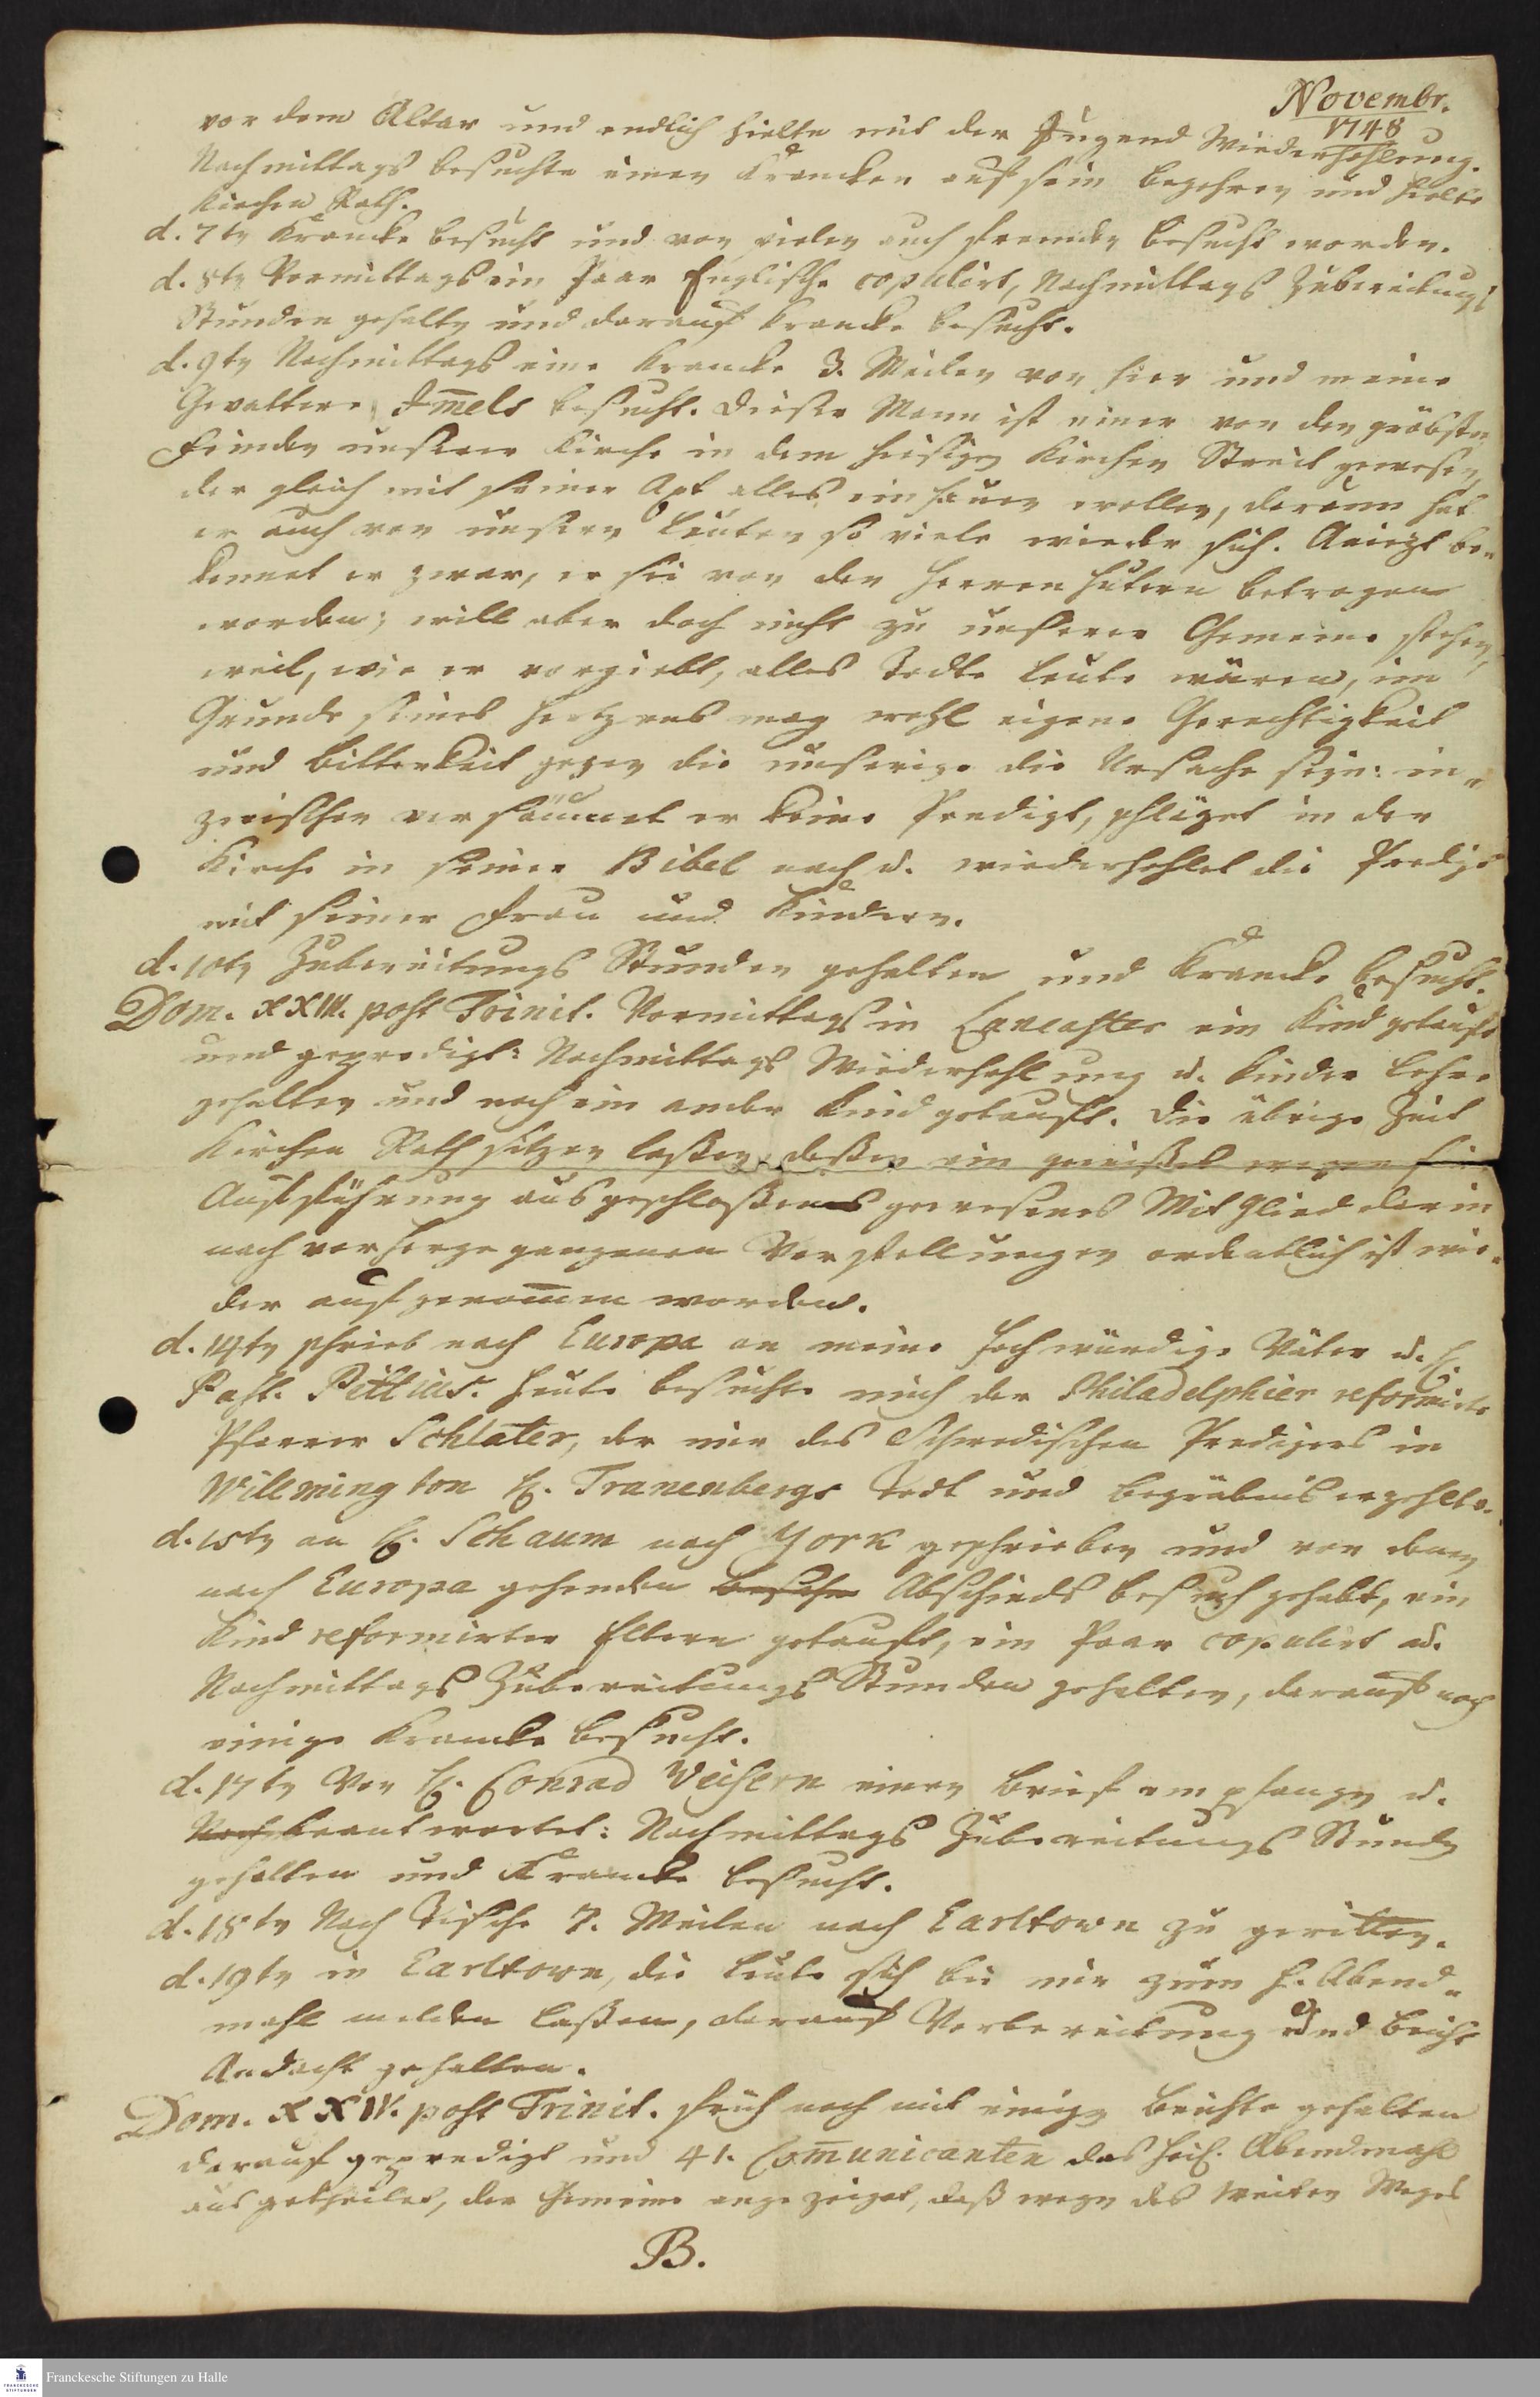 Novembr.
1748
vor dem Altar und endlich hielte mit der Jugend Wiederhohlung.
Nachmittags besuchte einen Krancken auf sein begehren und hielte
Kirchen Rath.
d. 7tn Krancke besucht und von vielen auch fremden besucht worden.
d. 8tn Vormittags ein Paar Englische copulirt, Nachmittags Zubereitungs
Stunden gehaltn und darauf Krancke besucht.
d. 9tn Nachmittags eine Krancke 3. Meilen von hier und meine
Gevattere Im̄els besucht. Dieser Mann ist einer von den gröbsten
Feinden unserer Kirche in dem hiesigen Kirchen Streit gewesen,
der gleich mit seiner Axt alles ein hauen wollen, darum hat
er auch von unsern Leuten so viele wieder sich. Aniezt be-
kennet er zwar, er sei von den Herren hutern betrogen
worden; will aber doch nicht zu unserer Gemeine stehen,
weil, wie er vorgiebt, alles Todte Leute wären, im
Grunde seines Hertzens mag wohl eigene Gerechtigkeit
und bitterkeit gegen die unserige die Ursache seyn: in-
zwischen versäumet er keine Predigt, schläget in der
Kirche in seiner Bibel nach u. wiederhohlet die Predigt
mit seiner Frau und Kindern.
d. 10tn Zubereitungs Stunden gehalten und Krancke besucht.
Dom. XXIII. post Trinit. Vormittags in Lancaster ein Kind getauft
und geprediget: Nachmittags Wiederhohlung u. Kinder Lehre
gehalten und noch ein ander Kind getauft. Die übrige Zeit
Kirchen Rath sitzen laßen, deßen ein gewißes wegen
Aufführung ausgeschloßenes gewesenes Mitglied darin
nach vorhergegangenen Vorstellungen ordentlich ist wie-
der aufgenom̄en worden.
d. 14tn schrieb nach Europa an meine Hochwürdige Väter u. H.
Past. Pittius. Heute besuchte mich der Philadelphier reformirte
Pfarrer Schlater, der mir des Schwedischen Predigers in
Willmington H. Tranenbergs Todt und begräbnis erzehlte.
d. 15tn an H. Schaum nach York geschrieben und von denen
nach Europa gehenden Abschieds besuch gehabt, ein
Kind reformirter Eltern getauft, ein Paar copulirt u.
Nachmittags Zubereitungs Stunden gehalten, darauf noch
einige Krancke besucht.
d. 17tn Von H. Conrad Weisern einen brief empfangen u.
beantwortet: Nachmittags Zubereitungs Stunden
gehalten und Krancke besucht.
d. 18tn Nach Tische 7. Meilen nach Earltown zu geritten.
d. 19tn in Earltown, die Leute sich bei mir zum H. Abend-
mahl melden laßen, darauf Vorbereitung und beicht
Andacht gehalten.
Dom. XXIV. post Trinit. früh noch mit einigen beichte gehalten
darauf geprediget und 41. Com̄unicanten das heil. Abendmahl
ausgetheilet, der Gemeine angezeiget, daß wegen des weiten Weges
B.
Franckesche Stiftungen zu Halle